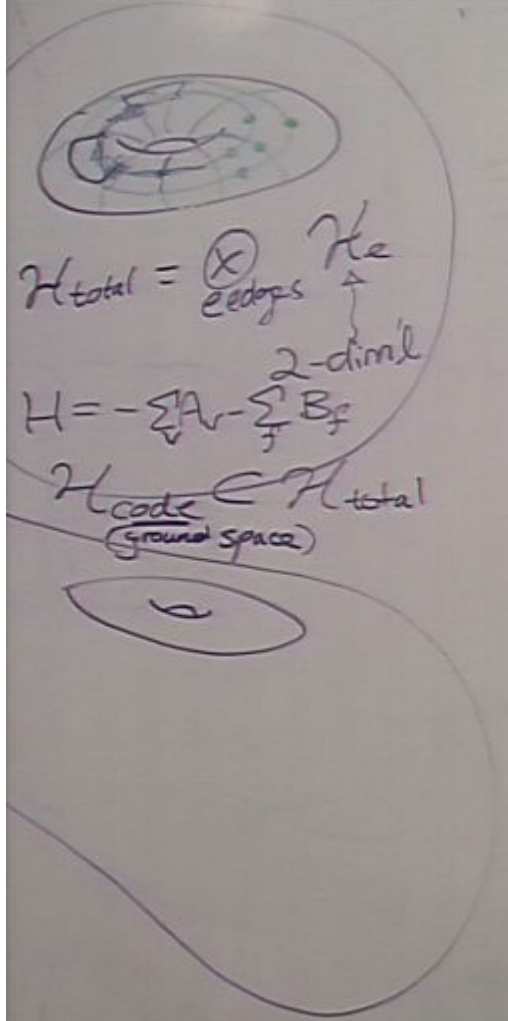 H_total = ⊗ H_e
e∈edges
2-dim'l
H = -Σ_v A_v - Σ_f B_f
H_code ⊂ H_total
(ground space)